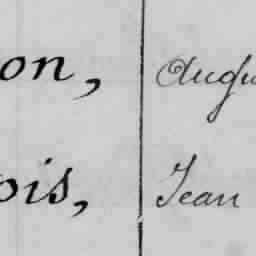 on, Augu
ois, Jean